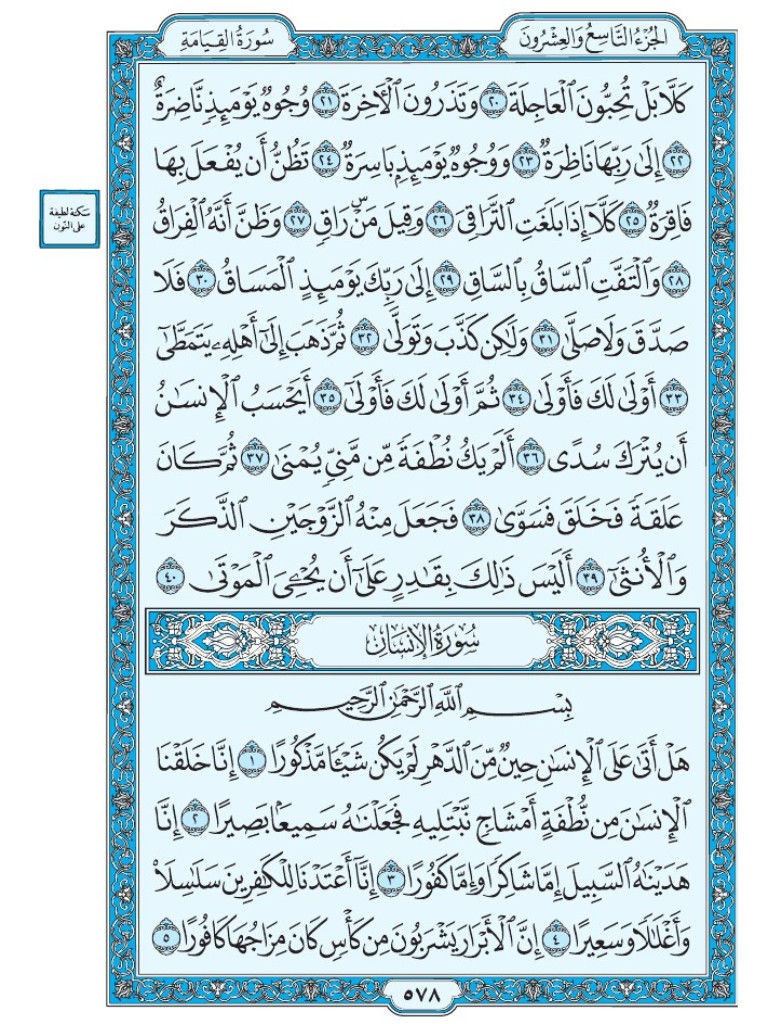 الجُزْءُ التَّاسِعُ وَالعِشْرُونَ
سُورَةُ القِيَامَةِ
كَلَّا بَلْ تُحِبُّونَ ٱلْعَاجِلَةَ ٢٠ وَتَذَرُونَ ٱلْأٓخِرَةَ ٢١ وُجُوهٌ يَوْمَئِذٍ نَّاضِرَةٌ
٢٢ إِلَىٰ رَبِّهَا نَاظِرَةٌ ٢٣ وَوُجُوهٌ يَوْمَئِذٍۭ بَاسِرَةٌ ٢٤ تَظُنُّ أَن يُفْعَلَ بِهَا
فَاقِرَةٌ ٢٥ كَلَّآ إِذَا بَلَغَتِ ٱلتَّرَاقِيَ ٢٦ وَقِيلَ مَنْۜ رَاقٍ ٢٧ وَظَنَّ أَنَّهُ ٱلْفِرَاقُ
٢٨ وَٱلْتَفَّتِ ٱلسَّاقُ بِٱلسَّاقِ ٢٩ إِلَىٰ رَبِّكَ يَوْمَئِذٍ ٱلْمَسَاقُ ٣٠ فَلَا
صَدَّقَ وَلَا صَلَّىٰ ٣١ وَلَٰكِن كَذَّبَ وَتَوَلَّىٰ ٣٢ ثُمَّ ذَهَبَ إِلَىٰٓ أَهْلِهِۦ يَتَمَطَّىٰٓ
٣٣ أَوْلَىٰ لَكَ فَأَوْلَىٰ ٣٤ ثُمَّ أَوْلَىٰ لَكَ فَأَوْلَىٰٓ ٣٥ أَيَحْسَبُ ٱلْإِنسَٰنُ
أَن يُتْرَكَ سُدًى ٣٦ أَلَمْ يَكُ نُطْفَةً مِّن مَّنِيٍّ يُمْنَىٰ ٣٧ ثُمَّ كَانَ
عَلَقَةً فَخَلَقَ فَسَوَّىٰ ٣٨ فَجَعَلَ مِنْهُ ٱلزَّوْجَيْنِ ٱلذَّكَرَ
وَٱلْأُنثَىٰٓ ٣٩ أَلَيْسَ ذَٰلِكَ بِقَٰدِرٍ عَلَىٰٓ أَن يُحْۧيَ ٱلْمَوْتَىٰ ٤٠
سكتة لطيفة
على النون
سُورَةُ الإِنسَانِ
بِسْمِ ٱللَّهِ ٱلرَّحْمَٰنِ ٱلرَّحِيمِ
هَلْ أَتَىٰ عَلَى ٱلْإِنسَٰنِ حِينٌ مِّنَ ٱلدَّهْرِ لَمْ يَكُن شَيْـًٔا مَّذْكُورًا ١ إِنَّا خَلَقْنَا
ٱلْإِنسَٰنَ مِن نُّطْفَةٍ أَمْشَاجٍ نَّبْتَلِيهِ فَجَعَلْنَٰهُ سَمِيعًۢا بَصِيرًا ٢ إِنَّا
هَدَيْنَٰهُ ٱلسَّبِيلَ إِمَّا شَاكِرًا وَإِمَّا كَفُورًا ٣ إِنَّآ أَعْتَدْنَا لِلْكَٰفِرِينَ سَلَٰسِلَا۟
وَأَغْلَٰلًا وَسَعِيرًا ٤ إِنَّ ٱلْأَبْرَارَ يَشْرَبُونَ مِن كَأْسٍ كَانَ مِزَاجُهَا كَافُورًا ٥
٥٧٨